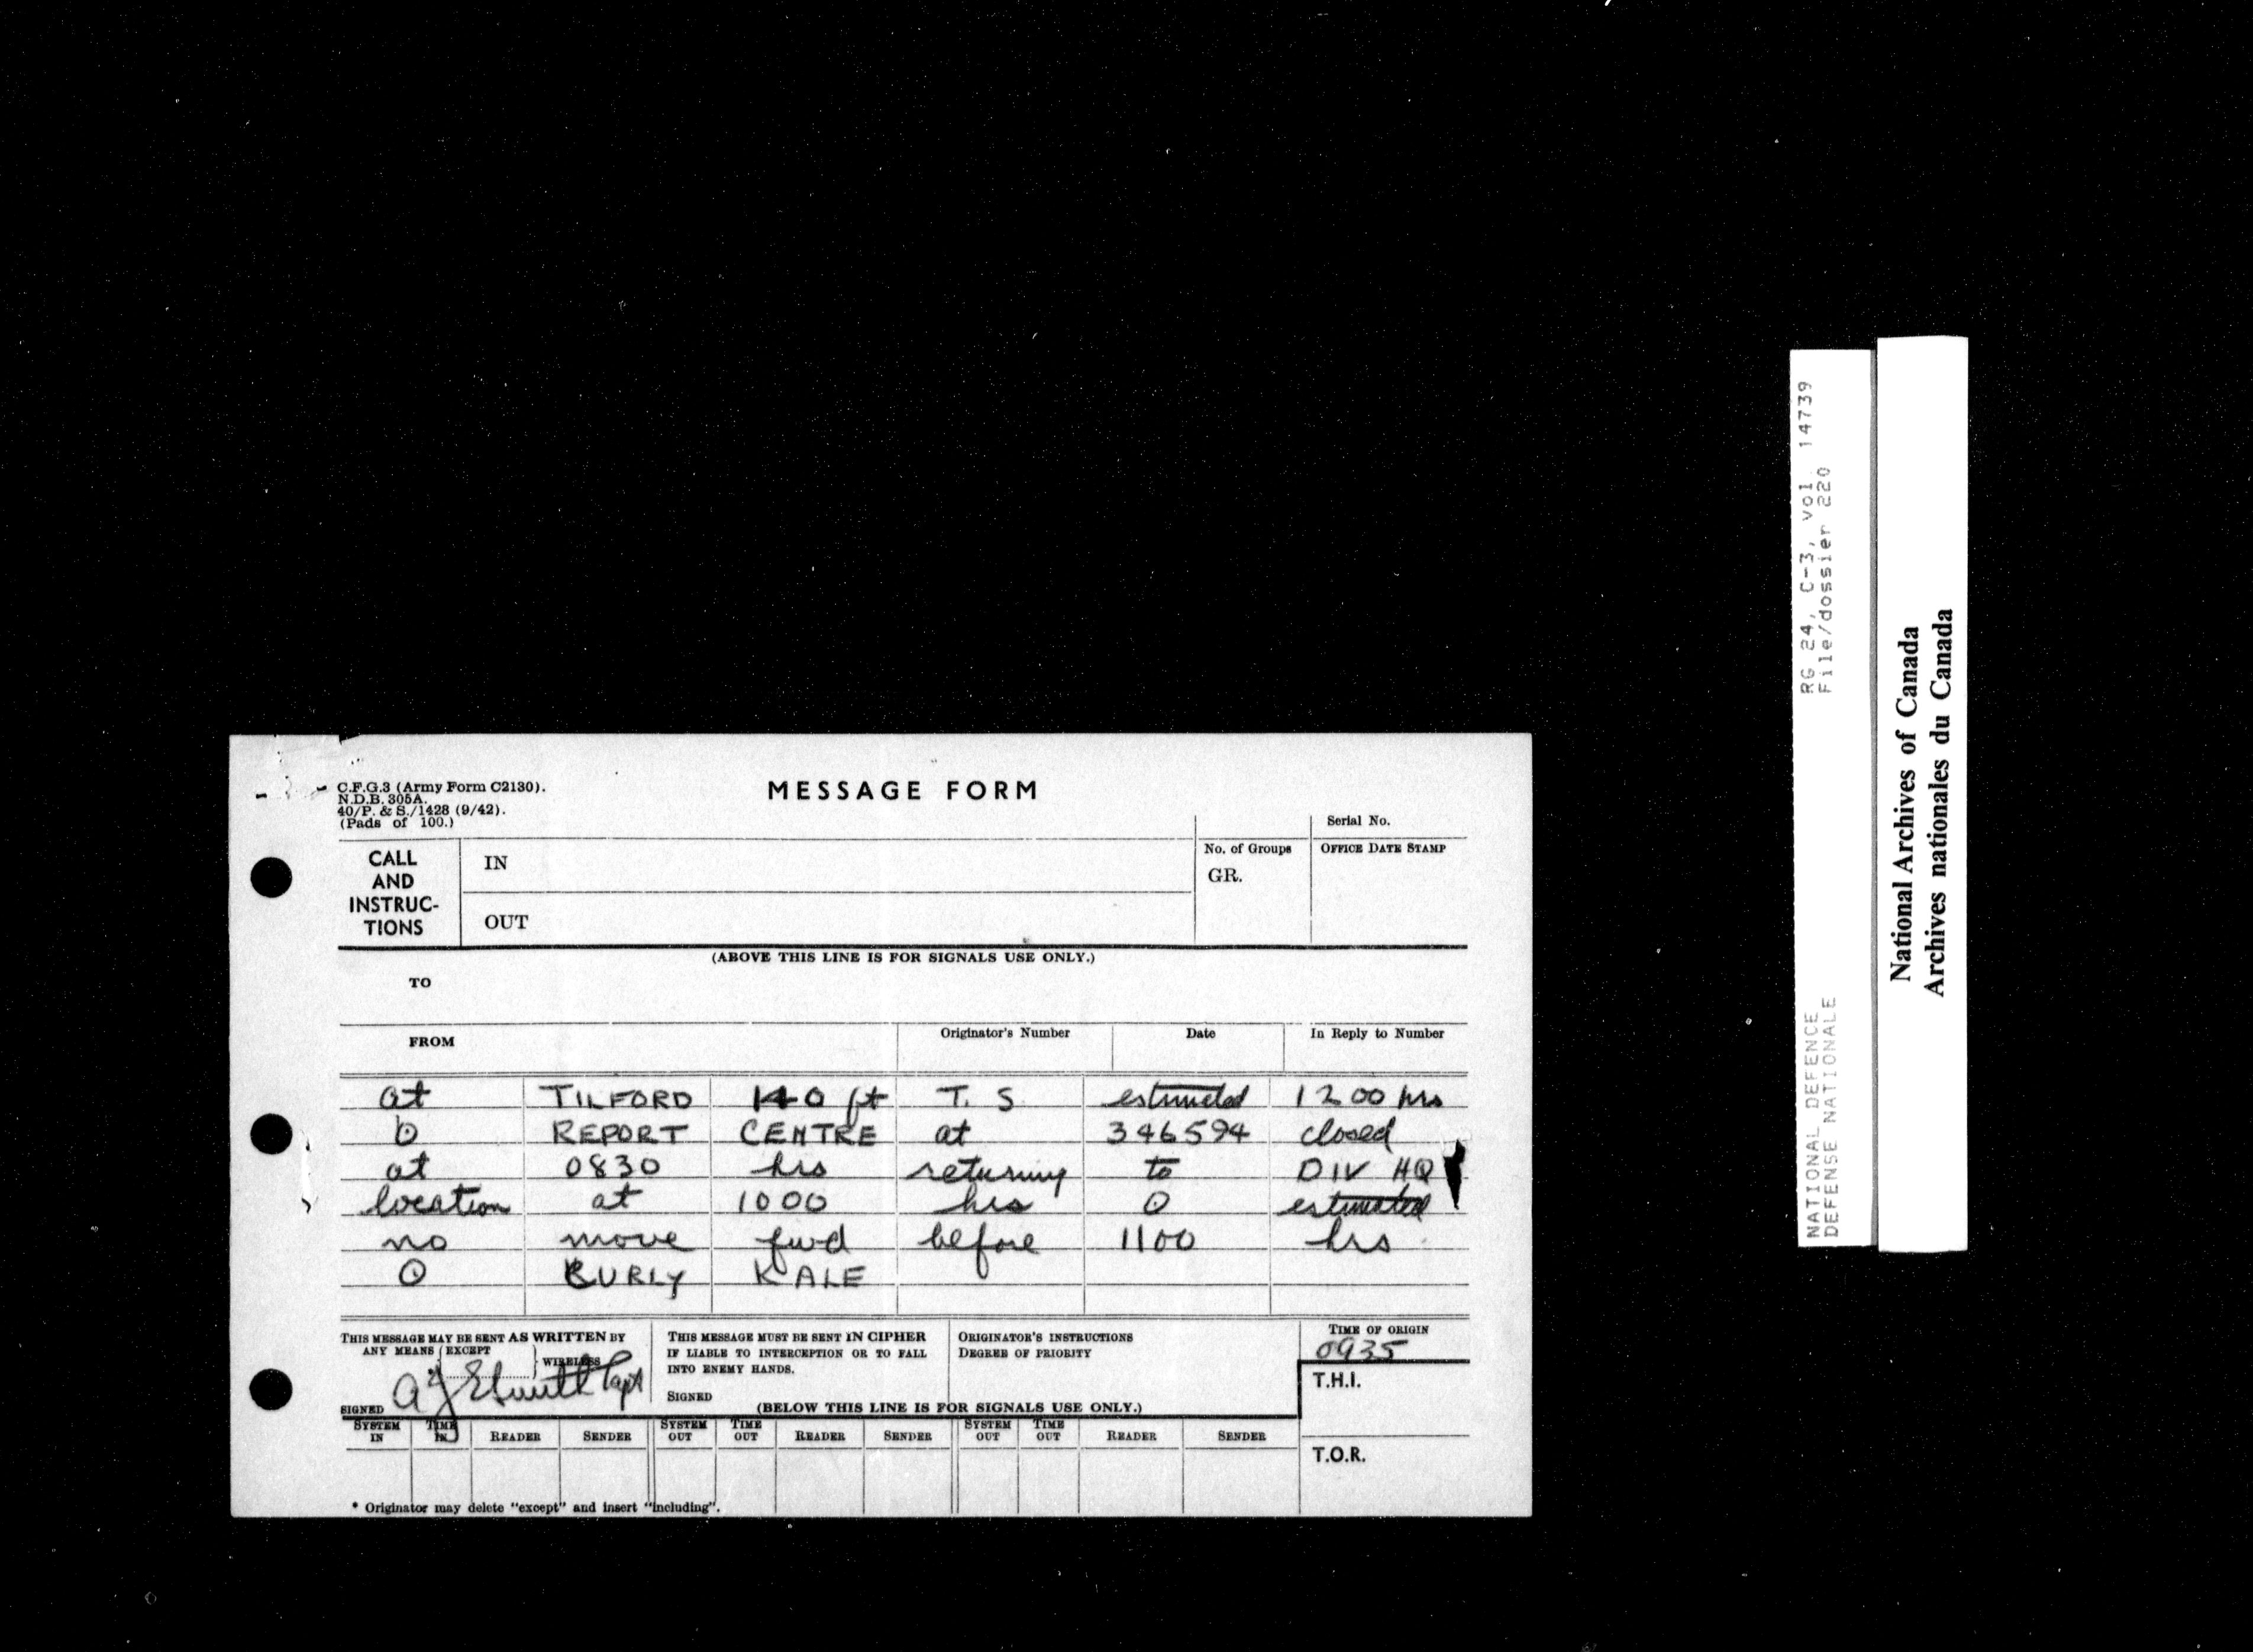 C.F.G.3 (Army Form C2130).
N.D.B. 305A.
40/P. & S./1428 (9/42).
(Pads of 100.)
MESSAGE FORM
Serial No.
CALL AND INSTRUC-TIONS
IN
No. of Groups
GR.
OFFICE DATE STAMP
OUT
(ABOVE THIS LINE IS FOR SIGNALS USE ONLY.)
TO
FROM
Originator's Number
Date
In Reply to Number
at TILFORD 140 ft T. S estimated 1200 hrs
⊙ REPORT CENTRE at 346594 closed
at 0830 hrs returning to DIV HQ
location at 1000 hrs ⊙ estimated
no move fwd before 1100 hrs
⊙ BURLY KALE
THIS MESSAGE MAY BE SENT AS WRITTEN BY
ANY MEANS EXCEPT
WIRELESS
SIGNED
Capt
THIS MESSAGE MUST BE SENT IN CIPHER
IF LIABLE TO INTERCEPTION OR TO FALL
INTO ENEMY HANDS.
SIGNED
ORIGINATOR'S INSTRUCTIONS
DEGREE OF PRIORITY
TIME OF ORIGIN
0935
T.H.I.
(BELOW THIS LINE IS FOR SIGNALS USE ONLY.)
SYSTEM IN TIME IN READER SENDER SYSTEM OUT TIME OUT READER SENDER SYSTEM OUT TIME OUT READER SENDER
T.O.R.
* Originator may delete "except" and insert "including".
NATIONAL DEFENCE RG 24, C-3, vol 14739
DEFENSE NATIONALE File/dossier 220
National Archives of Canada
Archives nationales du Canada